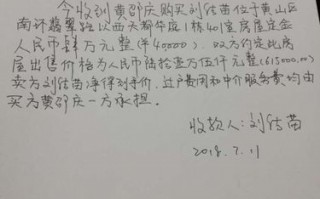 今收到黄邵庆购买刘结苗位于黄山区
南计翡翠路以西天都华庭1栋401室房屋定金
人民币肆万元整(¥40000)。双方约定此房
屋出售价格为人民币陆拾壹万伍仟元整(615000.00)
卖方刘结苗净得到手价,过户费用和中介服务费均由
买方黄邵庆一方承担。
收款人:刘结苗
2018.7.11